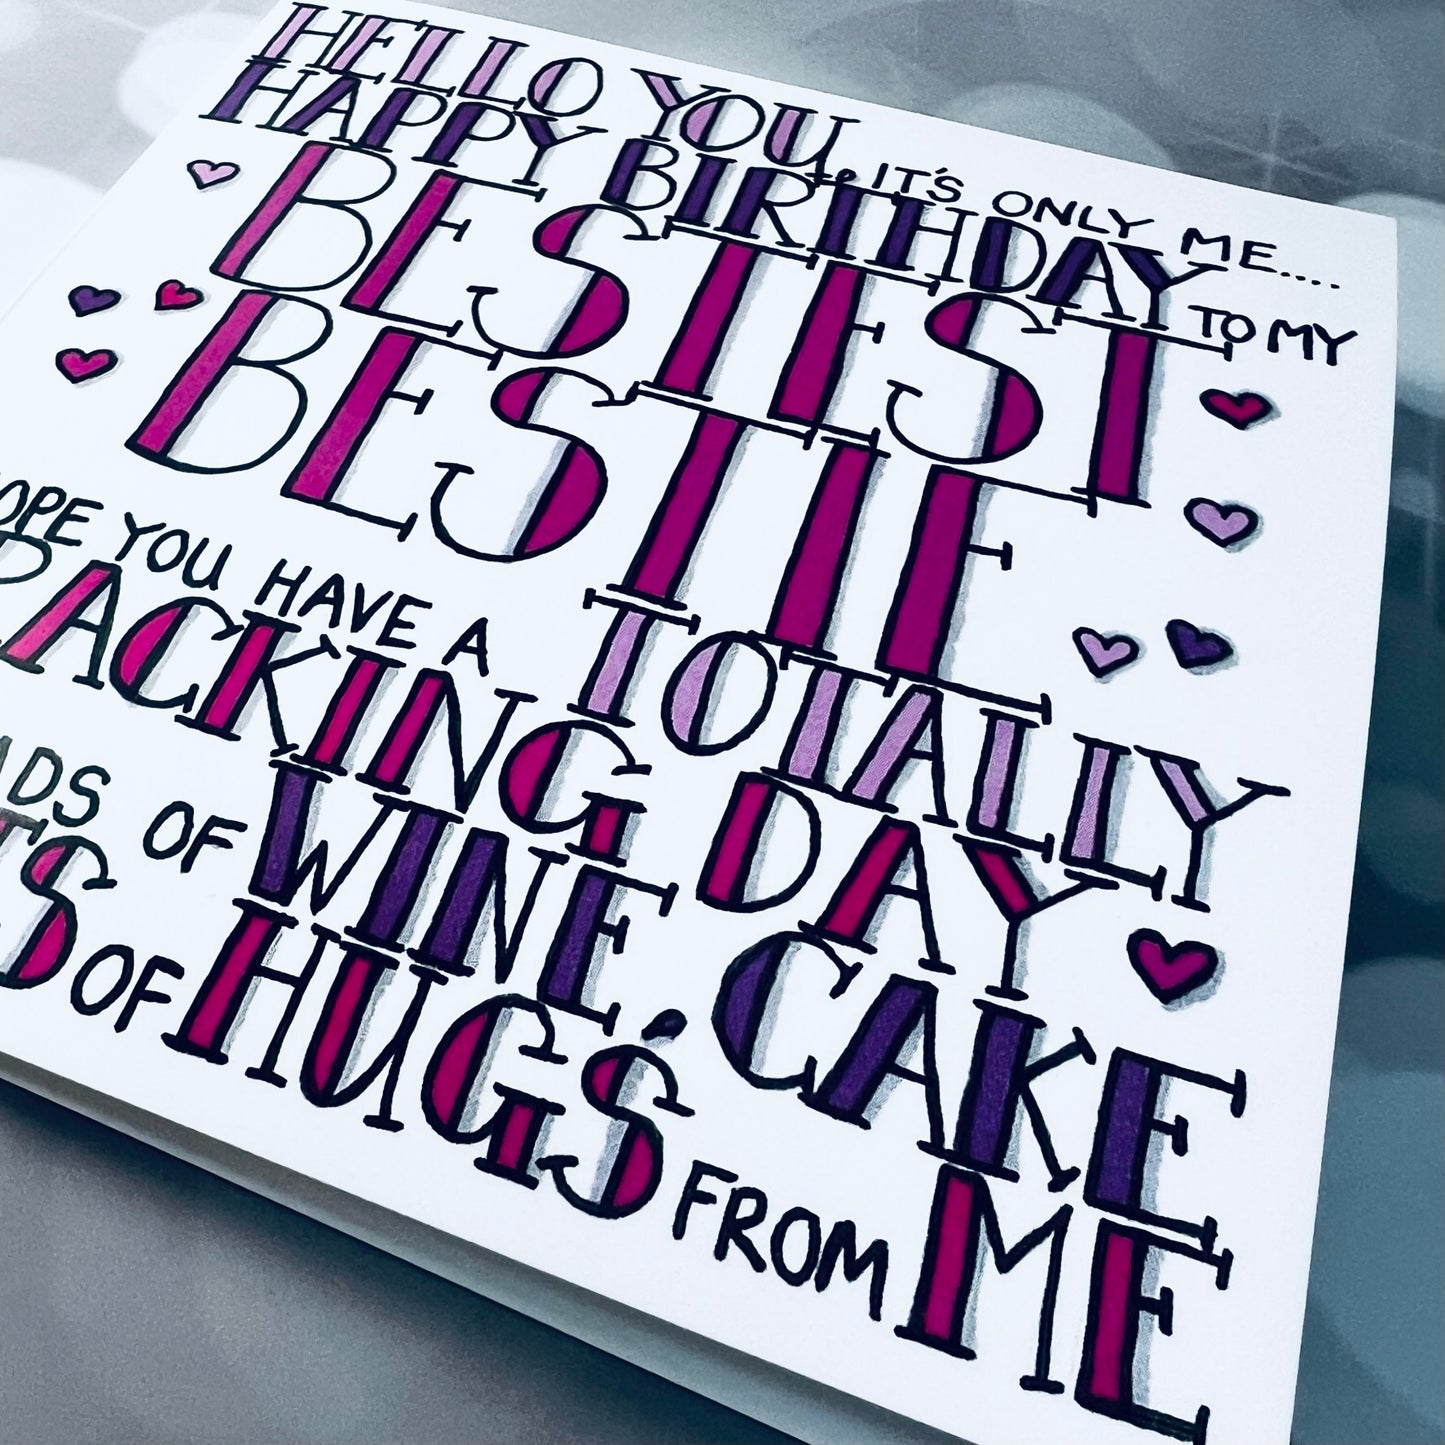 HELLO YOU, IT'S ONLY ME....
HAPPY BIRTHDAY TO MY
BESTEST
BESTIE
OPE YOU HAVE A TOTALLY
RACKING DAY
ADS OF WINE, CAKE
TS OF HUGS FROM ME